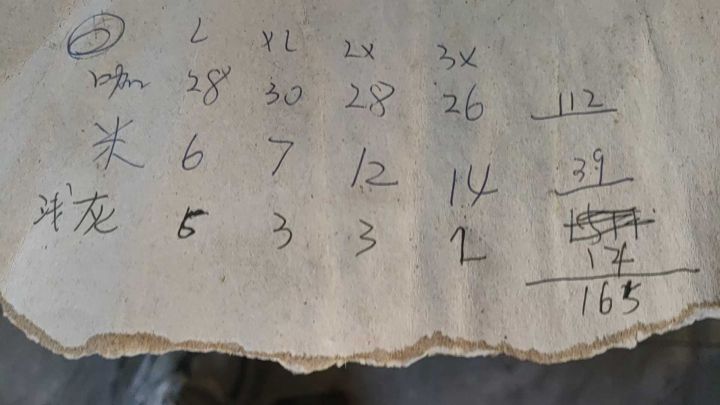 L XL 2X 3X
咖 28 30 28 26 112
米 6 7 12 14 39
浅灰 5 3 3
14
165